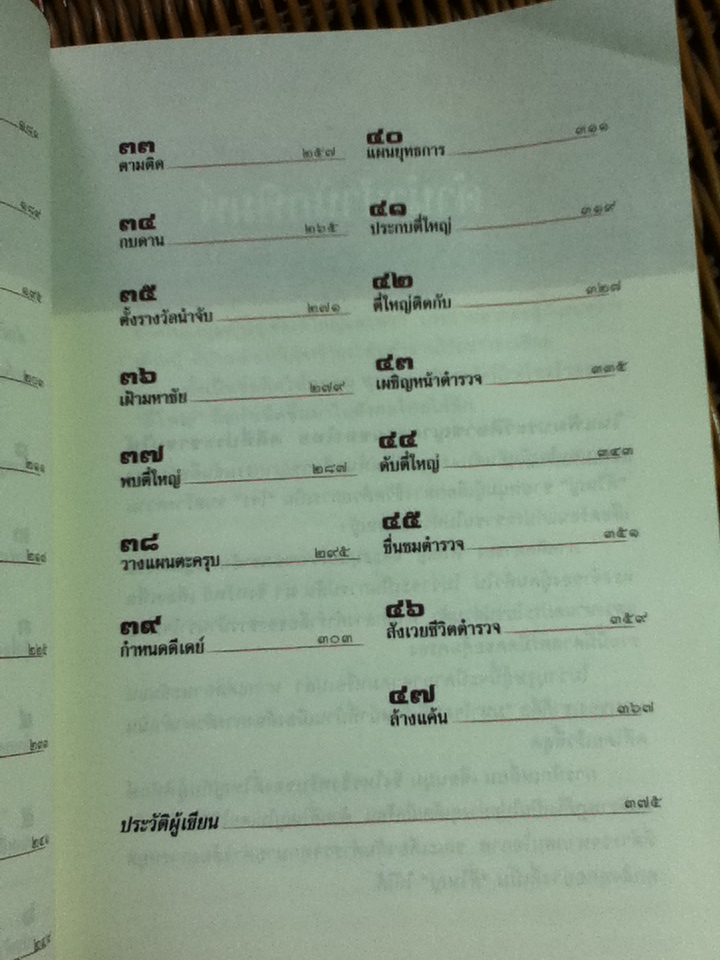 ๓๓
ตามติด ๒๕๗
๓๔
กบดาน ๒๖๕
๓๕
ตั้งรางวัลนำจับ ๒๗๑
๓๖
เฝ้ามหาชัย ๒๗๙
๓๗
พบตี๋ใหญ่ ๒๘๗
๓๘
วางแผนตะครุบ ๒๙๕
๓๙
กำหนดดีเดย์ ๓๐๓
๔๐
แผนยุทธการ ๓๑๑
๔๑
ประกบตี๋ใหญ่ ๓๑๙
๔๒
ตี๋ใหญ่ติดกับ ๓๒๗
๔๓
เผชิญหน้าตำรวจ ๓๓๕
๔๔
ดับตี๋ใหญ่ ๓๔๓
๔๕
ชื่นชมตำรวจ ๓๕๑
๔๖
สังเวยชีวิตตำรวจ ๓๕๙
๔๗
ล้างแค้น ๓๖๗
ประวัติผู้เขียน ๓๗๕